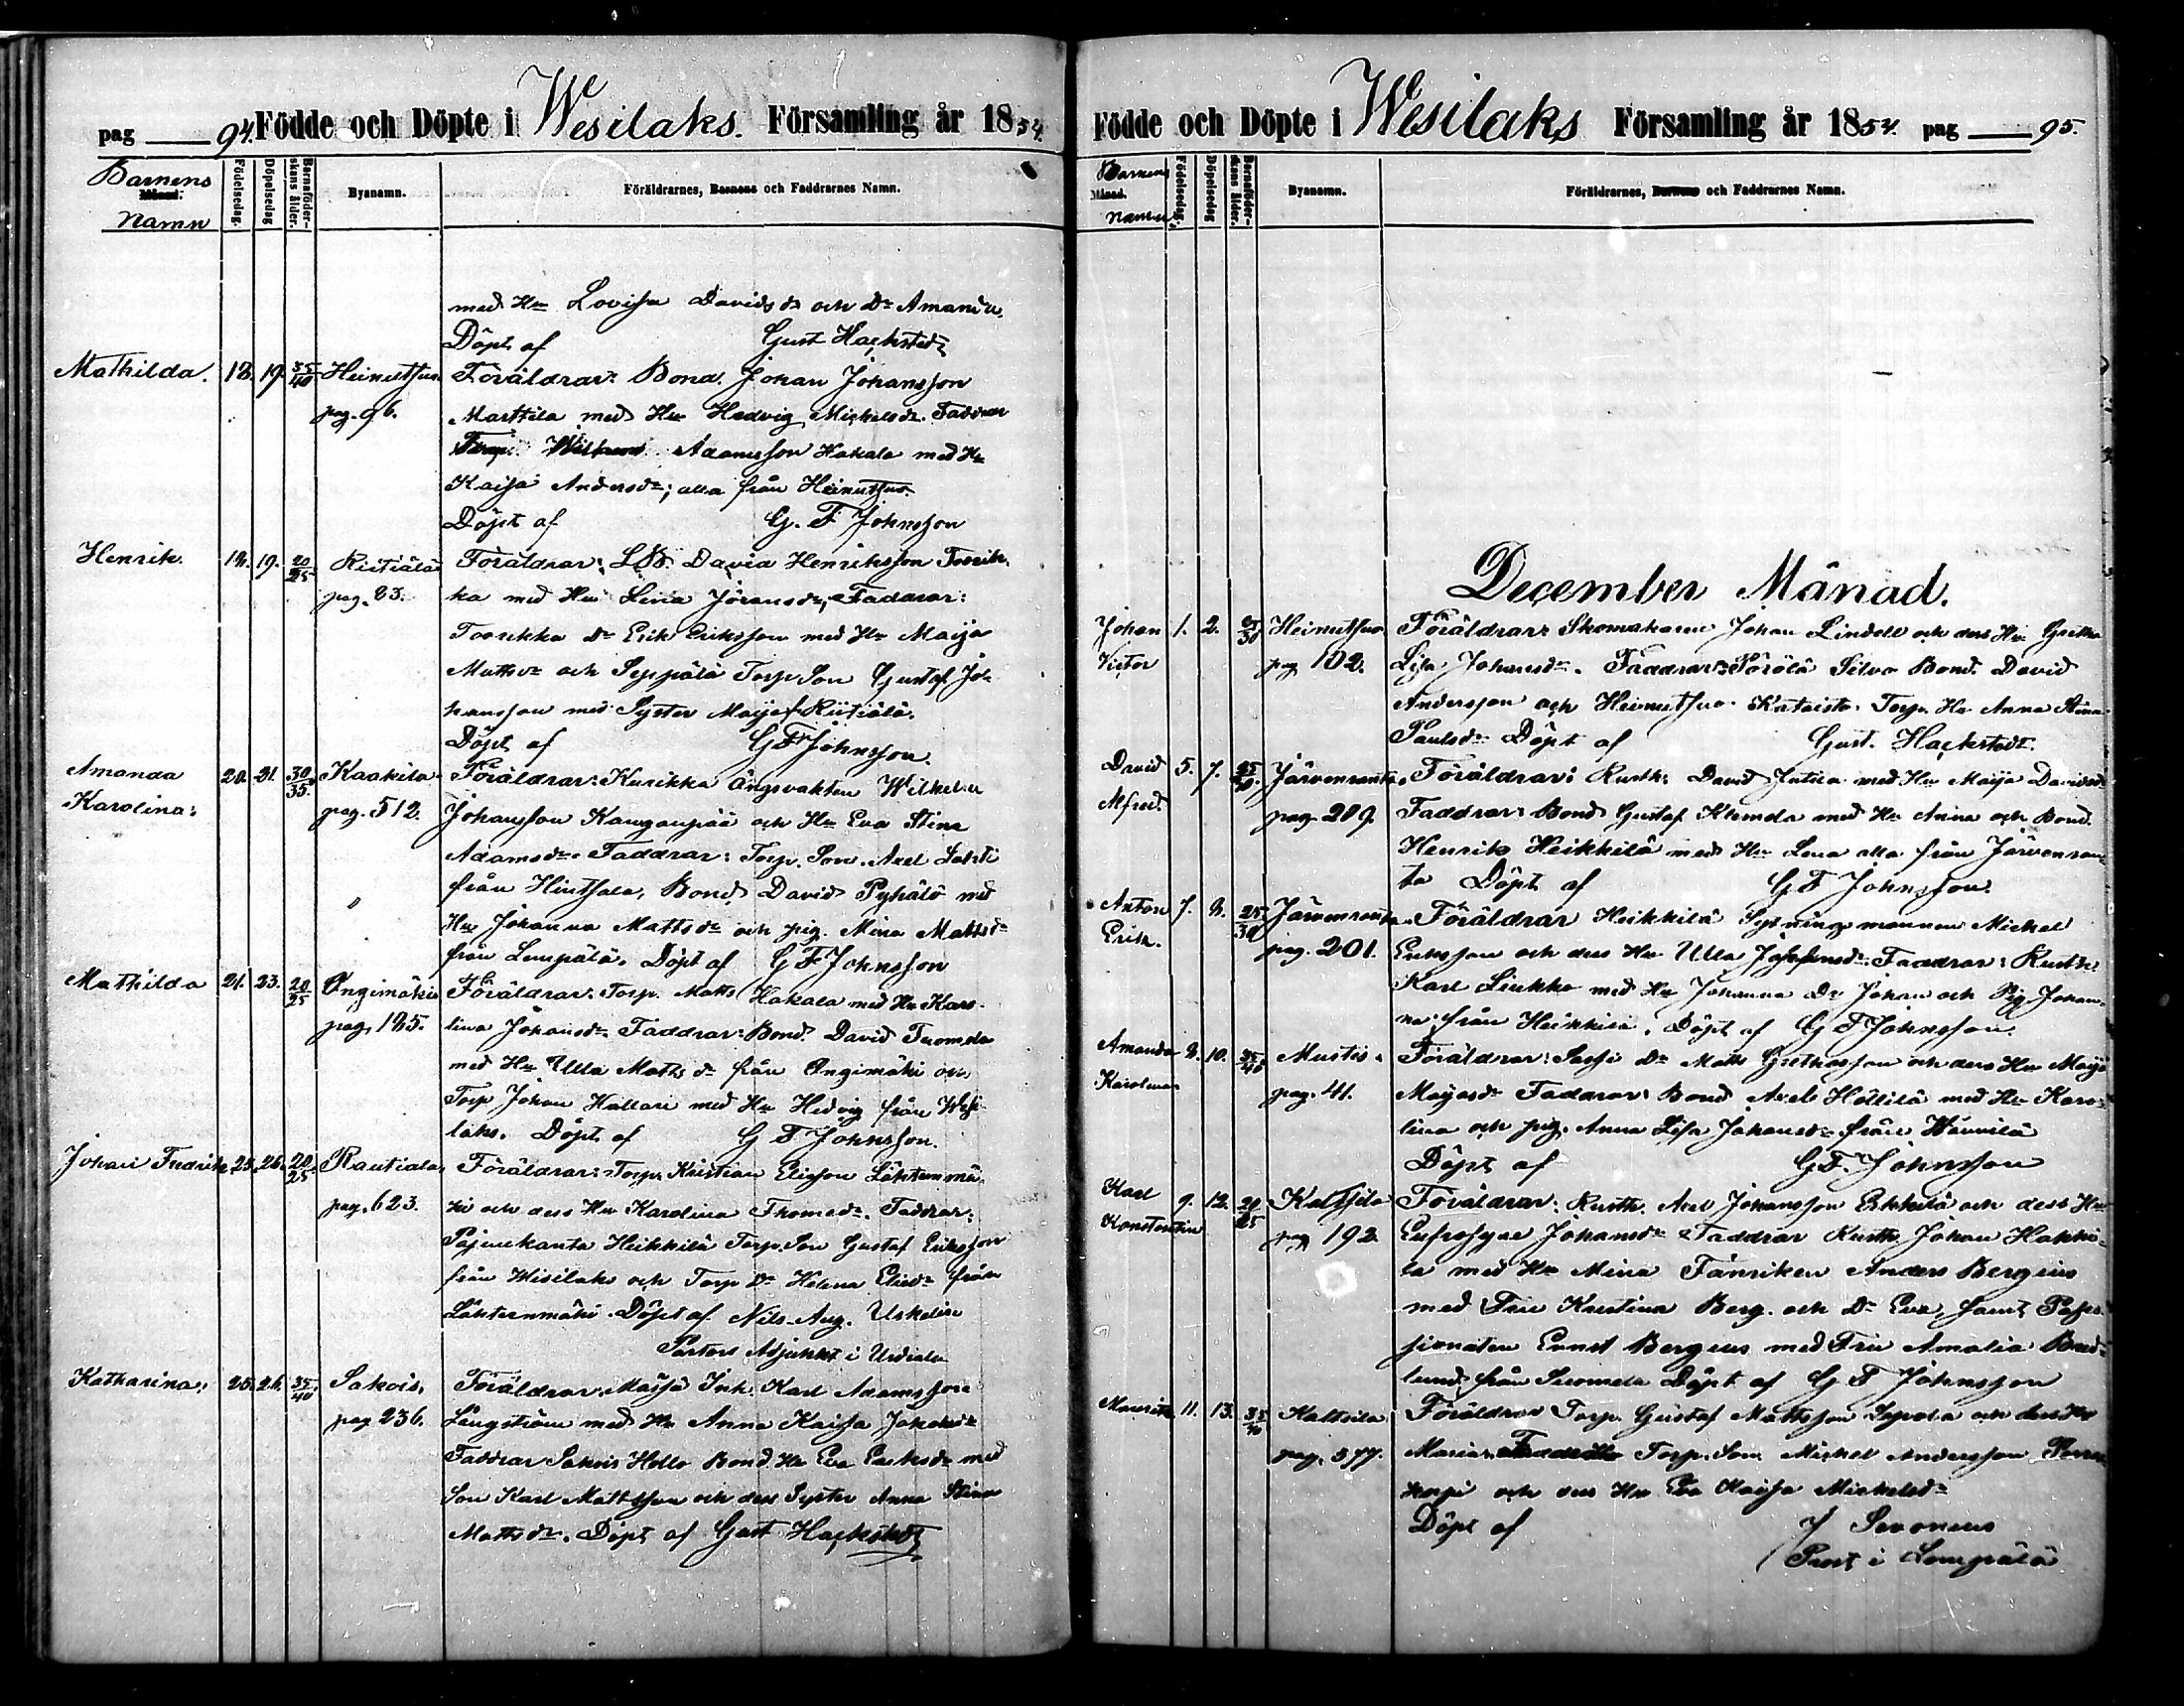 pag 94. Födde och Döpte i Wesilaks. Församling år 1854.
Barnens Månad. Namn
Födelsedag.
Döpelsedag
Barnaföder-
skans ålder.
Byanamn.
Föräldrarnes, Barnens och Faddrarnes Namn.
med Hu Lovisa Davidsdr och Dr Amanda.
Döpt af Gust Hackstedt
Mathilda. 18. 19. 35/40 Heinusuo Föräldrar: Bond. Johan Johansson
pag. 96. Marttila med Hu Hedvig Michelsdr. Faddrar
Adamsson Hakala med Hu
Kaisa Andersdr; alla från
Döpt af G. F Johnsson
Henrik. 18. 19. 20/25 Riitiälä Föräldrar: David Henriksson
pag. 83. ka med Hu Lena Göransdr, Faddrar:
Toorikka Dr Erik Eriksson med Hu Maija
Mattsdr och Seppälä Torp. Son Gustaf Jo-
hansson med Syster Maija f. Riitiälä.
Döpt af G F Johnsson.
Amanda Karolina. 20. 21. 30/35. Kaakila Föräldrar: Kurikka Ängsvakten Wilhelm
pag. 512. Johansson Kangaspää och Hu Eva Stina
Adamsdr. Faddrar: Torp. Son. Axel Lahti
från Hintsala, Bond. David Pyhältö med
Hu Johanna Mattsdr och pig. Mina Mattsdr
från Lempälä. Döpt af G F Johnsson
Mathilda 21. 23. 20/25 Ongimäki Föräldrar. Torp. Matts Hakala med Hu Karo-
pag. 185. lina Johansdr Faddrar: Bond. David Tuomela
med Hu Ulla Mattsdr från Ongimäki och
Torp Johan Hallari med Hu Hedvig från Wesi-
laks. Döpt af G F Johnsson.
Johan Fredrik 25. 26. 20/25 Rautiala Föräldrar: Torp. Kristian Elisson Lähteenmä-
pag. 623. ki och dess Hu Karolina Thomasdr. Faddrar:
Heikkilä Torp. Son Gustaf Eriksson
från Wesilaks och Torp Dr Helena Eliedr från
Lähteenmäki. Döpt af Nils Aug. Uskelin
Pastors Adjunkt i Urdiala
Katharina. 25. 26. 35/40 Sakois, Föräldrar. Inh. Karl Adamsson
pag 236. Långström med Hu Anna Kaisa Jakobsdr
Faddrar Sakois Hollo Bond. Hu Eva Eriksdr med
Son Karl Mattsson och dess Syster Anna Stina
Mattsdr. Döpt af Gust Hackstedt
Födde och Döpte i Wesilaks Församling år 1854. pag 95.
Barnens Månad. Namn
Födelsedag.
Döpelsedag
Barnaföder-
skans ålder.
Byanamn.
Föräldrarnes, Barnens och Faddrarnes Namn.
December Månad.
Johan Victor 1. 2. Heinusuo Föräldrar: Skomakaren Johan Lindell och dess Hu Gretha
pag 102. Lisa Johansdr. Faddrar: Bond. David
Andersson och Heinusuo Kataisto Torp. Hu Anna Stina
Paulsdr Döpt af Gust. Hackstedt.
David Alfred. 5. 7. Järvenranta Föräldrar: Rusth. David Jutila med Hu Maija Davidsdr
pag. 209. Faddrar: Bond Gustaf Klemola med Hu Anna och Bond.
Henrik Heikkilä med Hu Lena alla från Järvenran-
ta Döpt af G F Johnsson.
Anton Erik. 7. 8. 25/30 Järvenranta Föräldrar Heikkilä Sytningsmannen Michel
pag. 201. Eriksson och dess Hu Ulla Josefsdr. Faddrar: Rusth.
Karl Liukko med Hu Johanna Dr Johan och Pig Johan-
na från Heikkilä. Döpt af G F Johnsson.
Amanda Karolina 8. 10. 35/40 Mustis. Föräldrar: Dr Matts och dess Hu Maija
pag. 41. Faddrar: Bond Axel Höllilä med Hu Karo-
lina och pig. Anna Lisa Johansdr från
Döpt af G F. Johnsson
Karl Konstantin 9. 12. 20/25 Kaltsila Föräldrar: Rusth. Axel Johansson Erkkilä och dess Hu
pag 192. Eufrosyne Johansdr Faddrar Rusth. Johan Hakki-
la med Hu Mina Fänriken Anders Bergius
med Fru Kristina Berg. och Dr Eva, samt
Ernst Bergius med Fru Amalia
lund från Suomela Döpt af G F Johnsson
Mauritz 11. 13. 35/40 Kaltsila Föräldrar Torp. Gustaf Mattsson och dess Hu
pag. 577. Maria. Faddrar Torp. Son Michel Andersson
och dess Hu Eva Kaisa Michelsdr
Döpt af
Prost i Lempälä